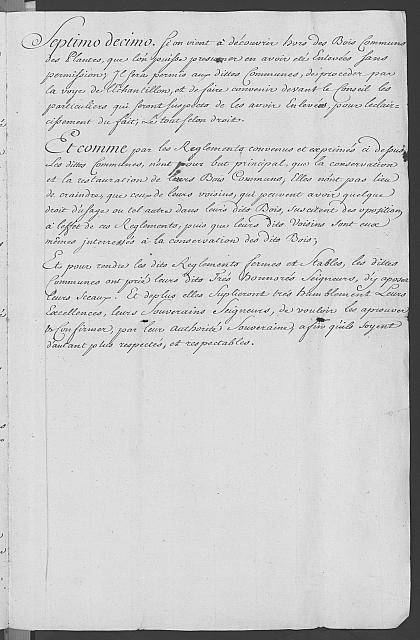 Septimo decimo. Si on vient à découvrir hors des Bois Communs
des Plantes, que l'on puisse présumer en avoir été Enlevées sans
permission; Il sera permis aux dittes Communes, de proceder par
la voye de l'Echantillon, et de faire convenir devant le Conseil les
particuliers qui seront suspects de les avoir Enlevées, pour l'eclair-
cissement du fait; Le tout selon droit.
Et comme par les Reglements convenus et exprimés ci dessus
Les dittes Communes, n'ont pour but principal, que la conservation
et la restauration de leurs Bois Communs, Elles n'ont pas lieu
de craindre, que ceux de leurs voisins, qui peuvent avoir quelque
droit d'usage ou tel autre dans leurs dits Bois, suscitent des oposition,
à l'effet de ces Reglements, puis que leurs dits Voisins sont eux
mêmes interressés à la conservation des dits Bois;
Et pour rendre les dits Reglements fermes et Stables, les dittes
Communes ont prié leurs dits Très Honnorés Seigneurs, d'y aposer
leurs Sceaux. Et de plus elles Suplieront très humblement Leurs
Excellences, leurs Souverains Seigneurs, de vouloir les aprouver
& confirmer, par leur authorité Souveraine, afin qu'ils soyent
d'autant plus respectés, et respectables.